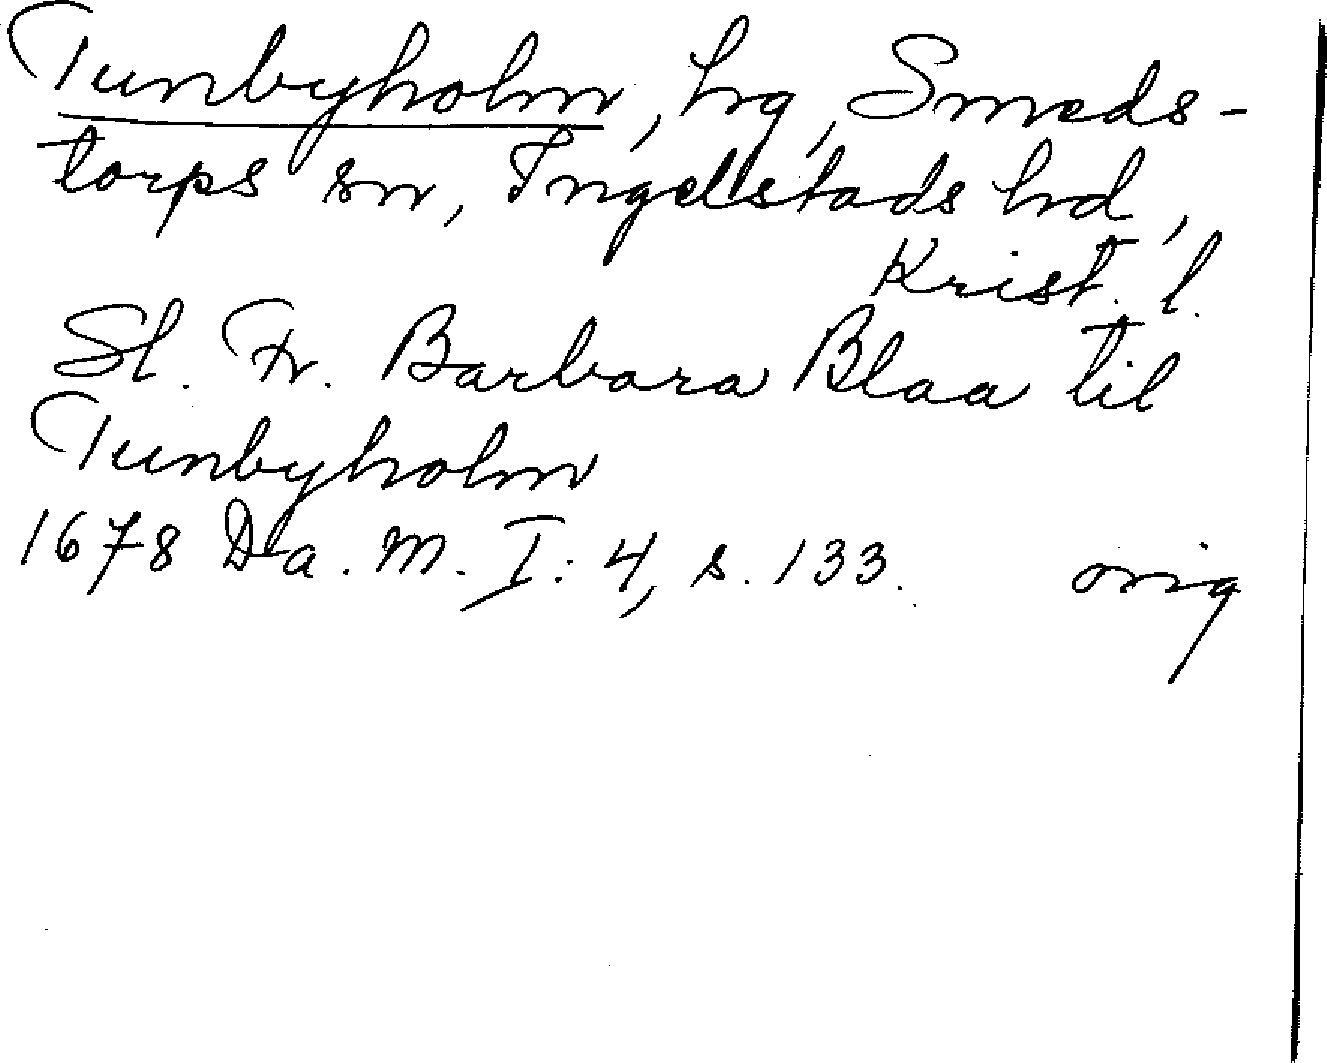 Tunbyholm, hrg, Smeds-
torps sn, Ingelstads hrd,
Krist. l.
Sl. Fr. Barbara Blaa til
Tunbyholm
1678 Da. M. I: 4, s. 133. orig